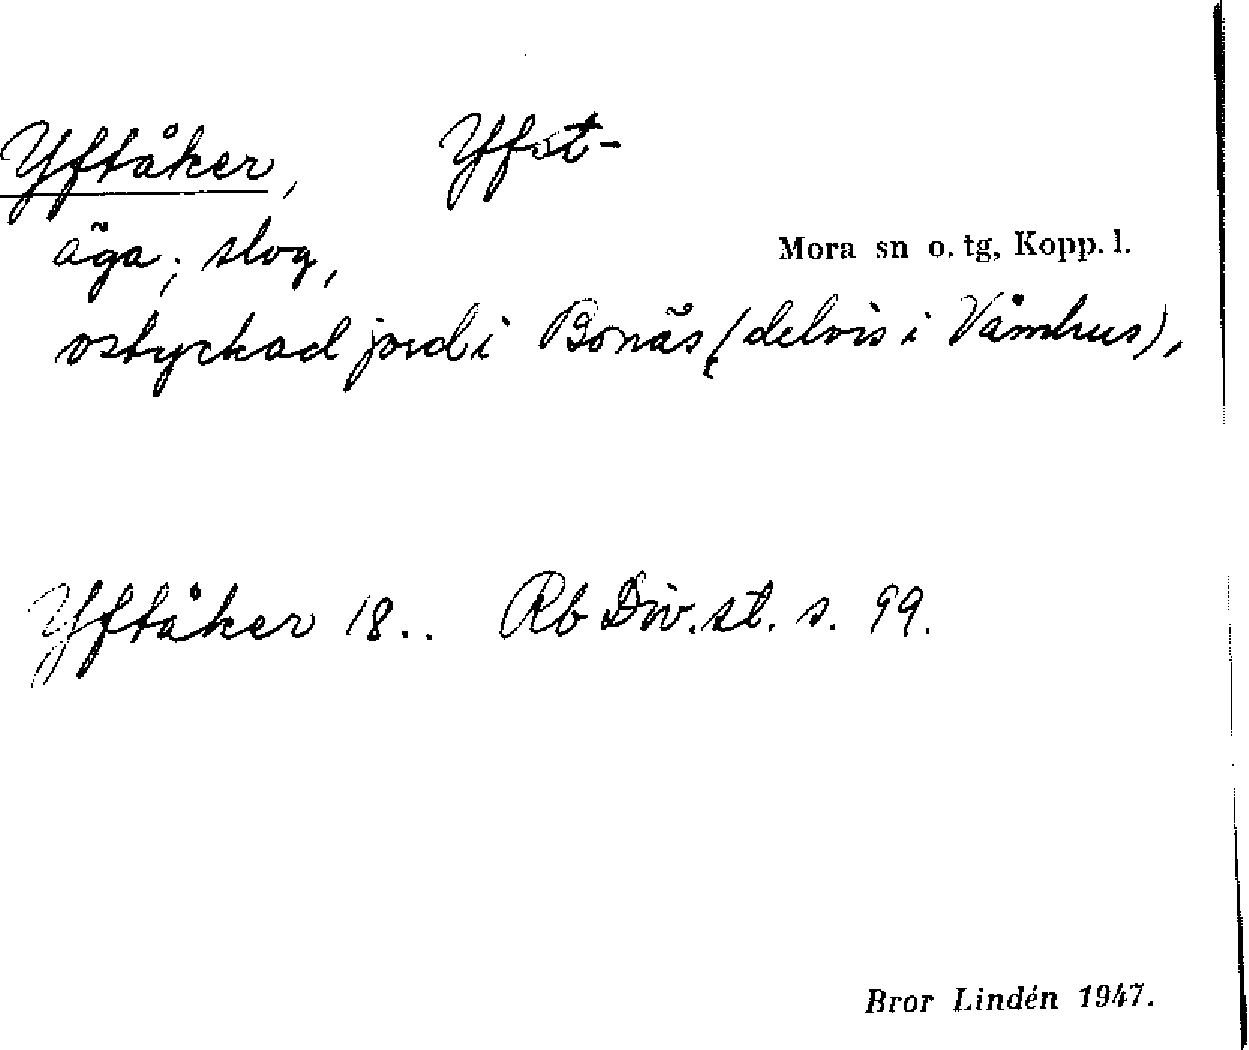 Yftåker, Yfst-
äga; slog, Mora sn o. tg, Kopp. l.
ostyckad jord i Bonäs (delvis i Våmhus),
Yftåker 18.. Rb Div. st. s. 99.
Bror Lindén 1947.